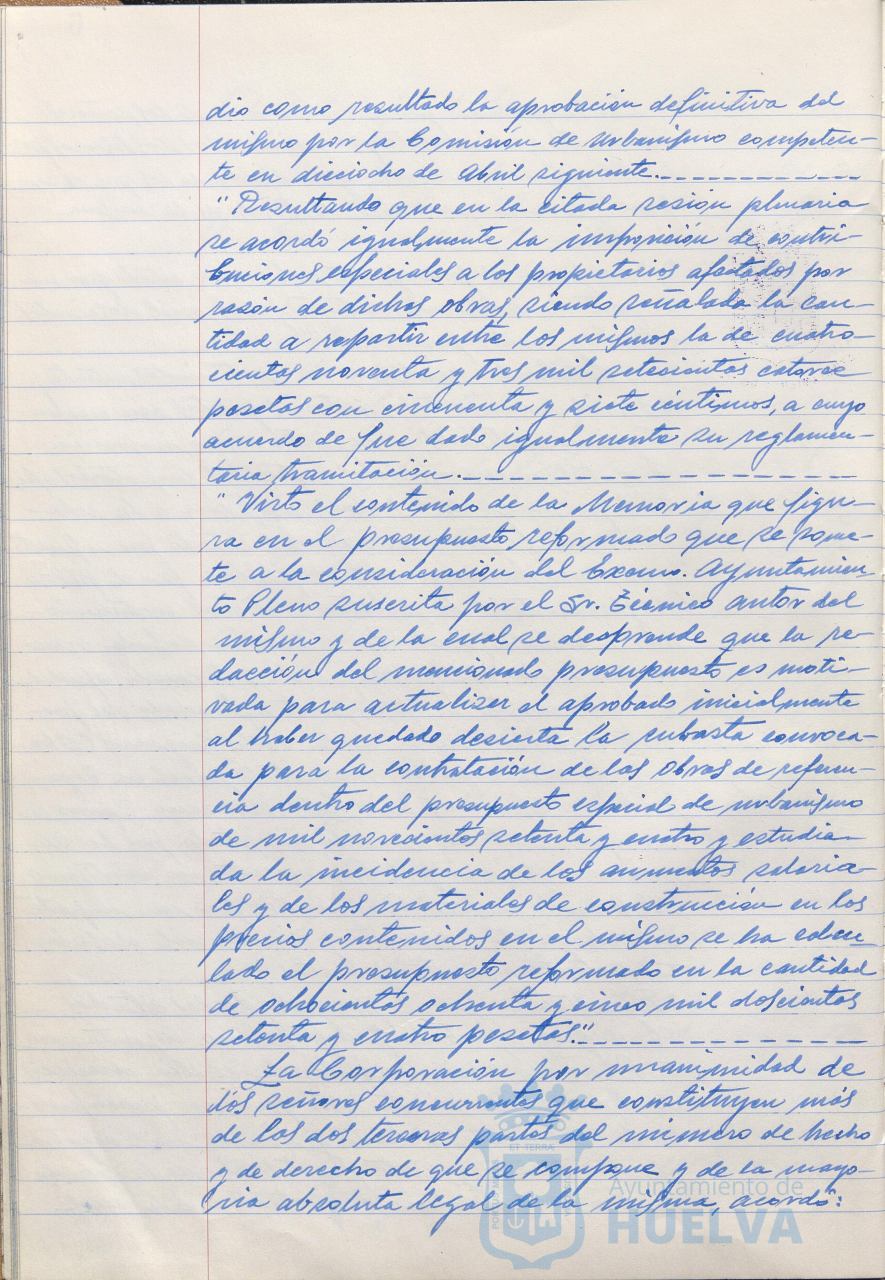 dio como resultado la aprobación definitiva del
mismo por la Comisión de Urbanismo competen-
te en dieciocho de Abril siguiente.------------
"Resultando que en la citada sesión plenaria
se acordó igualmente la imposición de contri-
buciones especiales a los propietarios afectados por
razón de dichas obras, siendo señalada la can-
tidad a repartir entre los mismos la de cuatro-
cientas noventa y tres mil setecientas catorce
pesetas con cincuenta y siete céntimos, a cuyo
acuerdo le fue dado igualmente su reglamen-
taria tramitación.------------
"Visto el contenido de la Memoria que figu-
ra en el presupuesto reformado que se some-
te a la consideración del Excmo. Ayuntamien-
to Pleno suscrita por el Sr. Técnico autor del
mismo y de la cual se desprende que la re-
dacción del mencionado presupuesto es moti-
vada para actualizar el aprobado inicialmente
al haber quedado desierta la subasta convoca-
da para la contratación de las obras de referen-
cia dentro del presupuesto especial de urbanismo
de mil novecientos setenta y cuatro y estudia-
da la incidencia de los aumentos salaria-
les y de los materiales de construcción en los
precios contenidos en el mismo se ha calcu-
lado el presupuesto reformado en la cantidad
de ochocientas ochenta y cinco mil doscientas
setenta y cuatro pesetas."------------
La Corporación por unanimidad de
los señores concurrentes que constituyen más
de las dos terceras partes del número de hecho
y de derecho de que se compone y de la mayo-
ría absoluta legal de la misma, acordó:
ET TERRAE
Ayuntamiento de
HUELVA